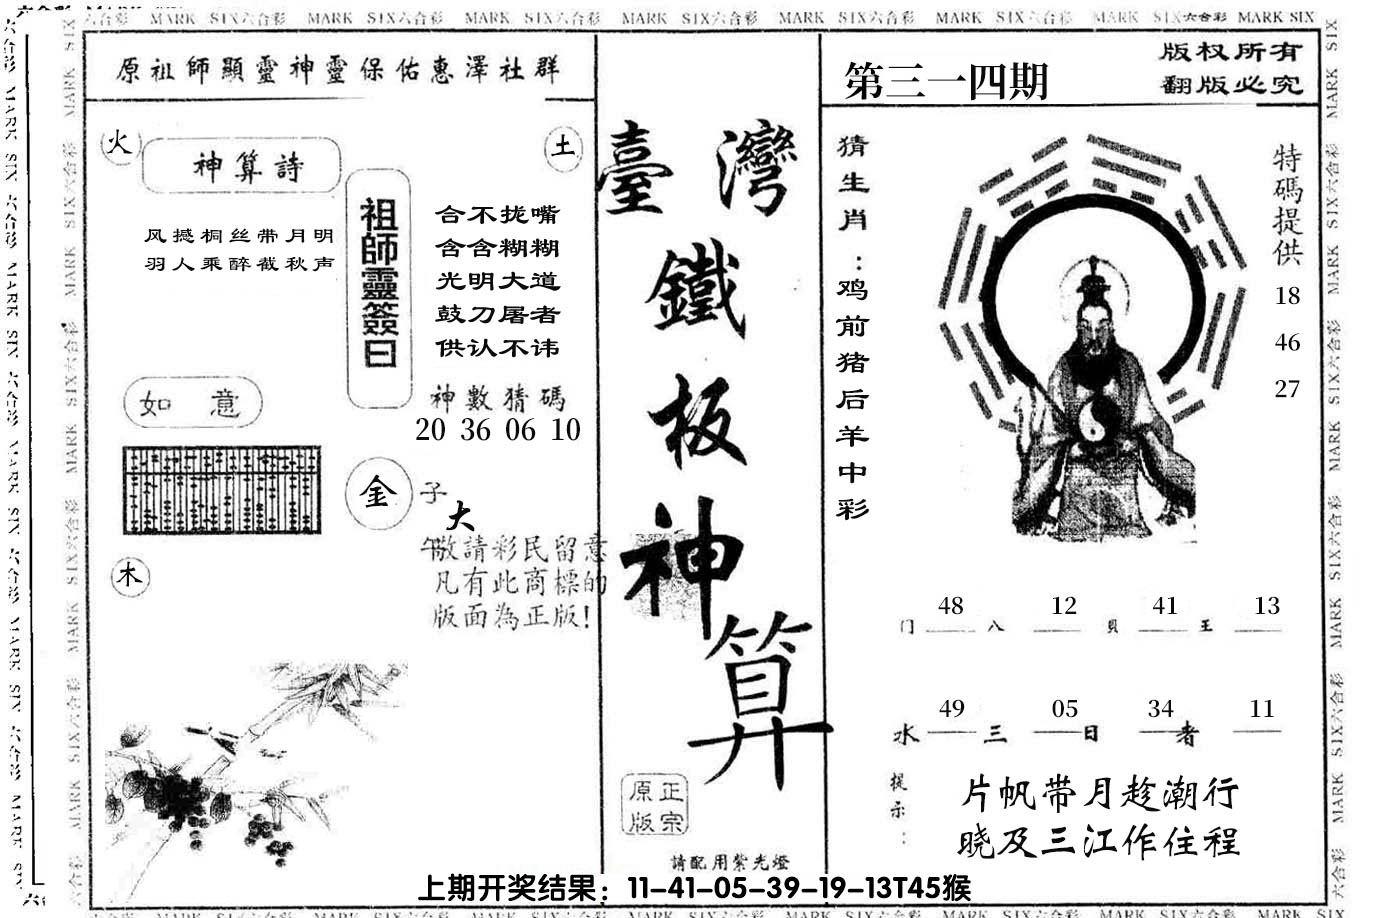 MARK SIX六合彩 MARK SIX六合彩 MARK SIX六合彩 MARK SIX六合彩 MARK SIX六合彩 MARK SIX六合彩 MARK SIX六合彩 MARK SIX
原祖師顯靈神靈保佑惠澤社群
火
神算詩
土
风撼桐丝带月明
羽人乘醉截秋声
祖師靈簽曰
合不拢嘴
含含糊糊
光明大道
鼓刀屠者
供认不讳
神數猜碼
20 36 06 10
如 意
金
子
大
午
敬請彩民留意
凡有此商標的
版面為正版!
木
臺灣
鐵
板
神
算
正宗
原版
請配用紫光燈
第三一四期
版权所有
翻版必究
猜生肖:鸡前猪后羊中彩
特碼提供
18
46
27
48 12 41 13
门 八 貝 王
49 05 34 11
水 三 日 者
提示:
片帆带月趁潮行
晓及三江作住程
上期开奖结果：11-41-05-39-19-13T45猴